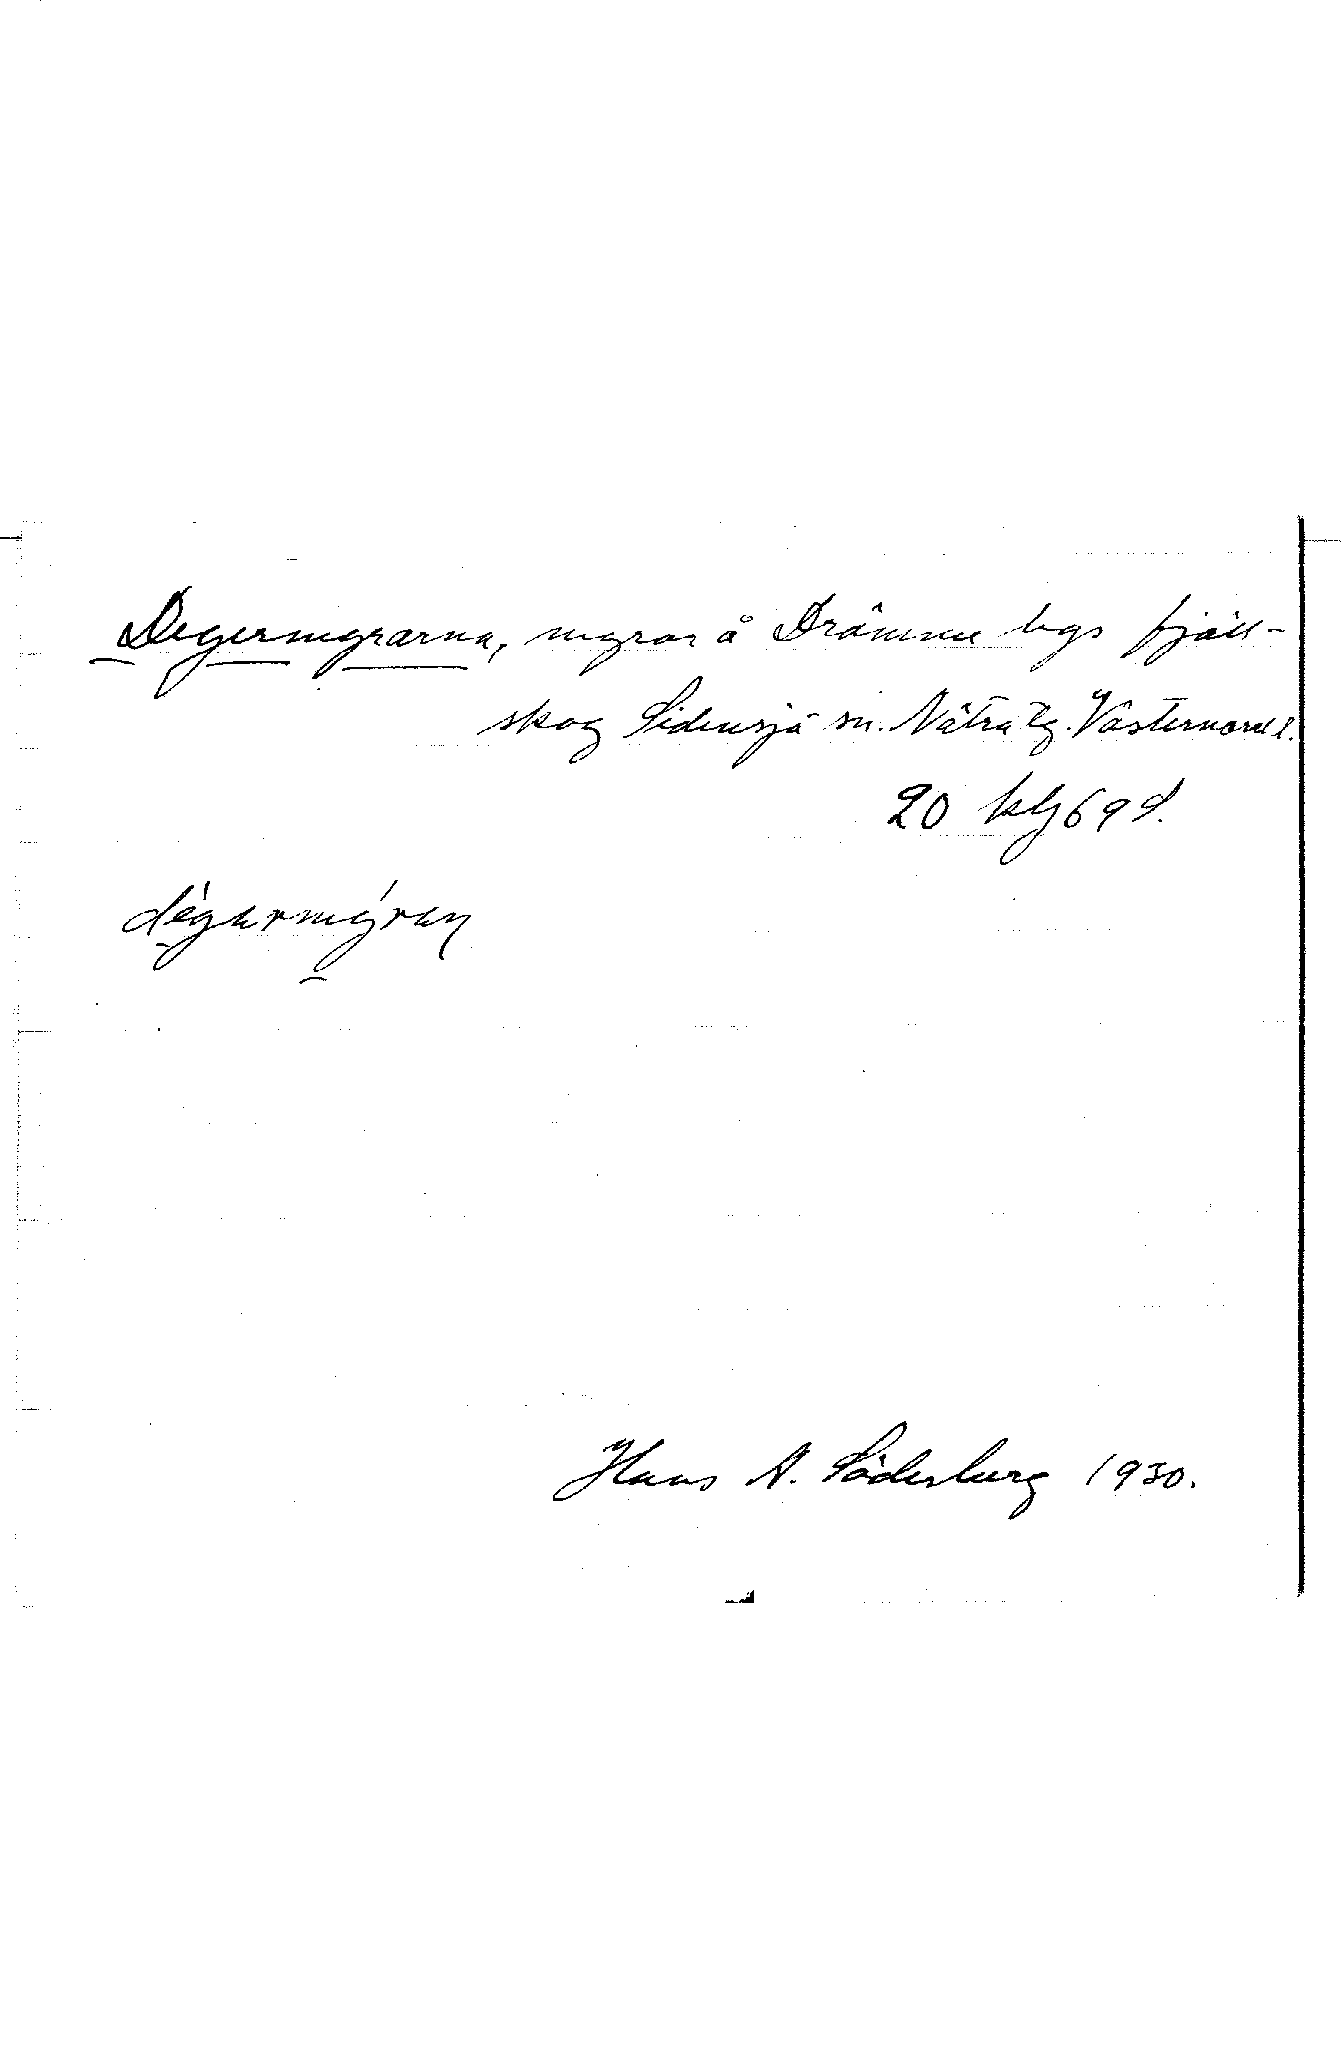 Degermyrarna, myrar å Drömme bys fjäll-
skog Sidensjö sn. Nätra tg. Västernorrl.
20
dégermýran
Hans A. Söderberg 1930.